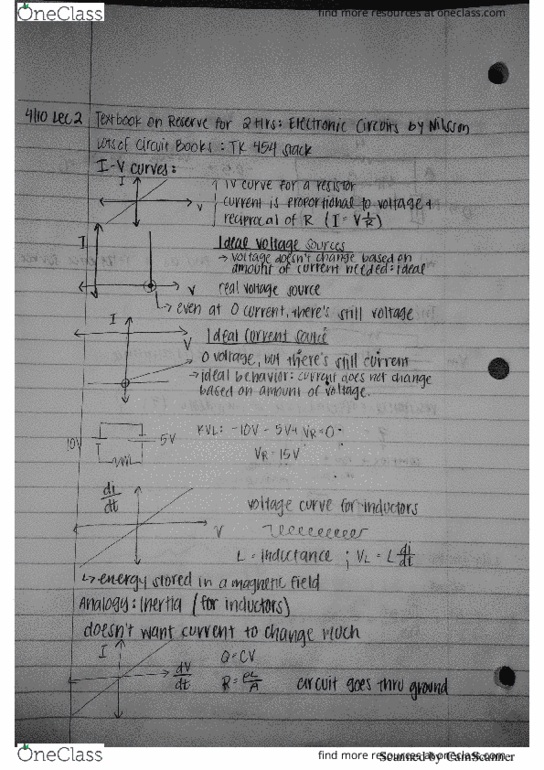 OneClass
find more resources at oneclass.com
4/10 Lec 2 Textbook on Reserve for 2 Hrs: Electronic Circuits by Nilsson
Lots of Circuit Books: TK 454 stack
I-V curves:
I
V
IV curve for a resistor
current is proportional to voltage +
reciprocal of R (I = V 1/R)
I
V
Ideal voltage sources
→ voltage doesn't change based on
amount of current needed = ideal
real voltage source
→ even at 0 current, there's still voltage
I
V
Ideal current source
0 voltage, but there's still current
→ ideal behavior: current does not change
based on amount of voltage.
10V
5V
KVL: -10V - 5V + VR = 0
VR = 15V
di/dt
V
voltage curve for inductors
L = inductance ; VL = L di/dt
↳ energy stored in a magnetic field
Analogy: Inertia (for inductors)
doesn't want current to change much
I
dV/dt
Q = CV
R = ρL/A
circuit goes thru ground
OneClass
find more resources at oneclass.com
Scanned by CamScanner